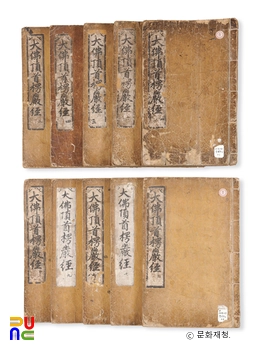 大佛頂首楞嚴經
大佛頂首楞嚴經
大佛頂首楞嚴經
大佛頂首楞嚴經
大佛頂首楞嚴經
大佛頂首楞嚴經
大佛頂首楞嚴經
大佛頂首楞嚴經
大佛頂首楞嚴經
大佛頂首楞嚴經
ⓒ 문화재청.